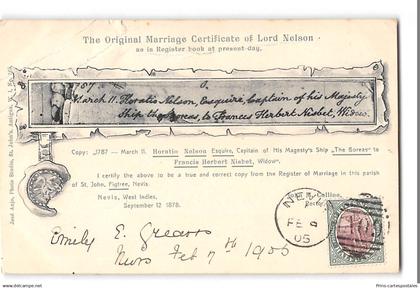 The Original Marriage Certificate of Lord Nelson
as in Register book at present-day.
1787
March 11. Horatio Nelson, Esquire, Captain of his Majesty
Ship the Boreas, to Frances Herbert Nisbet, Widow.
Copy: „1787 — March 11. Horatio Nelson Esquire, Captain of His Majesty's Ship „The Boreas" to
Francis Herbert Nisbet, Widow."
I certify the above to be a true and correct copy from the Register of Marriage in this parish
of St. John, Figtree, Nevis.
Collins,
Nevis, West Indies,
September 12 1878.
José Anjo, Photo Studio, St. John's, Antigua, W. I.
NEVIS
FE
05
Emily E.
Nevis Feb 7th 1905